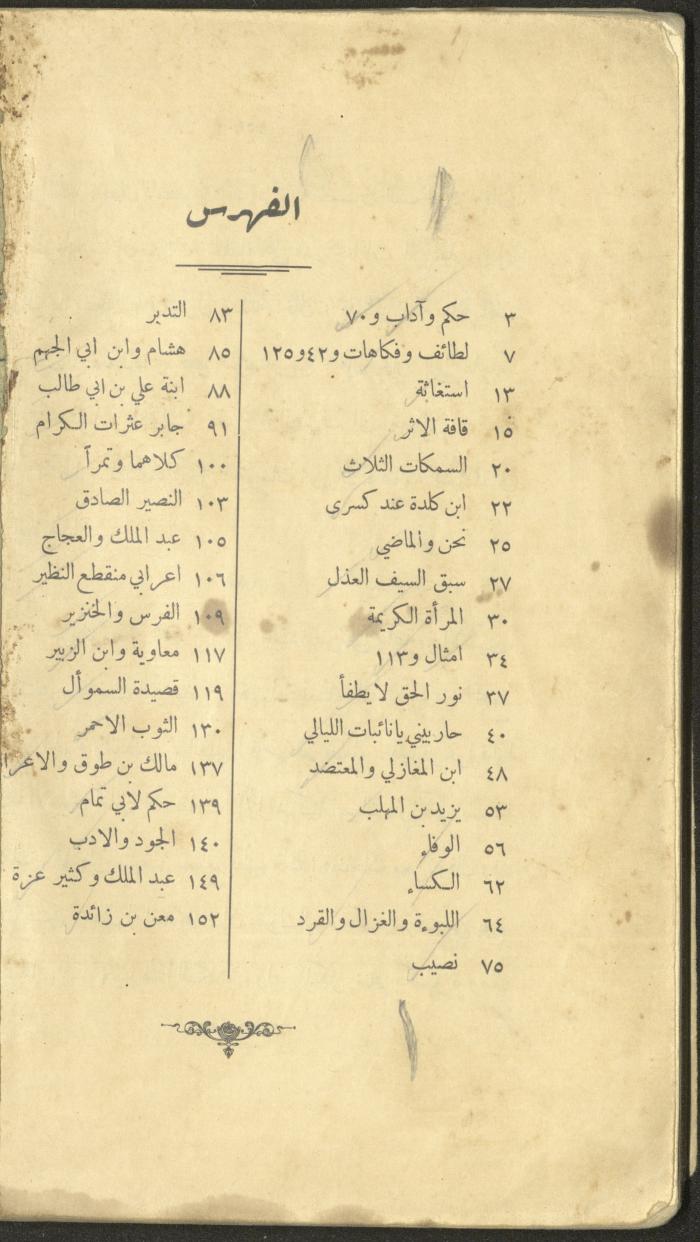 الفهرس
٣ حكم وآداب و٧٠
٧ لطائف وفكاهات و٤٢و١٢٥
١٣ استغاثة
١٥ قافة الاثر
٢٠ السمكات الثلاث
٢٢ ابن كلدة عند كسرى
٢٥ نحن والماضي
٢٧ سبق السيف العذل
٣٠ المرأة الكريمة
٣٤ امثال و١١٣
٣٧ نور الحق لا يطفأ
٤٠ حاربيني يا نائبات الليالي
٤٨ ابن المغازلي والمعتضد
٥٣ يزيد بن المهلب
٥٦ الوفاء
٦٢ الكساء
٦٤ اللبوءة والغزال والقرد
٧٥ نصيب
٨٣ التدبر
٨٥ هشام وابن ابي الجهم
٨٨ ابنة علي بن ابي طالب
٩١ جابر عثرات الكرام
١٠٠ كلاهما وتمراً
١٠٣ النصير الصادق
١٠٥ عبد الملك والعجاج
١٠٦ اعرابي منقطع النظير
١٠٩ الفرس والخنزير
١١٧ معاوية وابن الزبير
١١٩ قصيدة السموأل
١٣٠ الثوب الاحمر
١٣٧ مالك بن طوق والاعرا
١٣٩ حكم لابي تمام
١٤٠ الجود والادب
١٤٩ عبد الملك وكثير عزة
١٥٢ معن بن زائدة